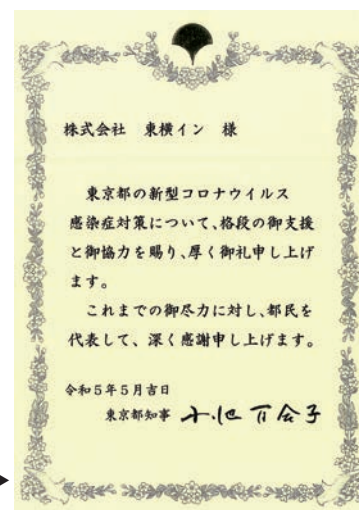 株式会社 東横イン 様
東京都の新型コロナウイルス
感染症対策について、格段の御支援
と御協力を賜り、厚く御礼申し上げ
ます。
これまでの御尽力に対し、都民を
代表して、深く感謝申し上げます。
令和5年5月吉日
東京都知事 小池百合子